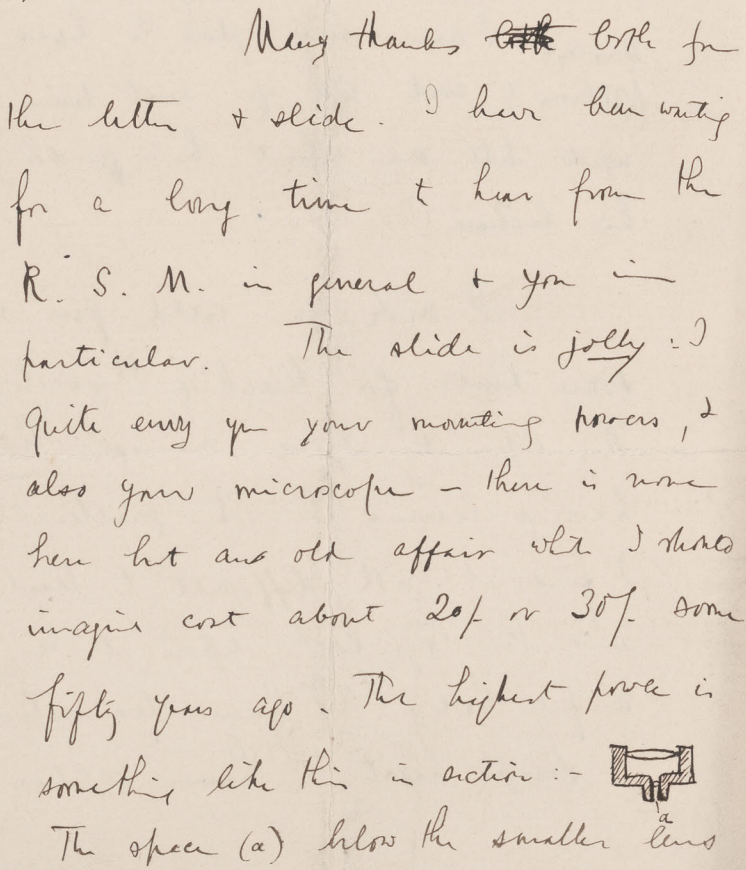 Many thanks both for
the letter & slide. I have been waiting
for a long time to hear from the
R. S. M. in general & you in
particular. The slide is jolly: I
quite envy you your mounting powers, &
also your microscope – there is none
here but an old affair which I should
imagine cost about 20/- or 30/- some
fifty years ago. The highest power is
something like this in section :-
a
The space (a) below the smaller lens